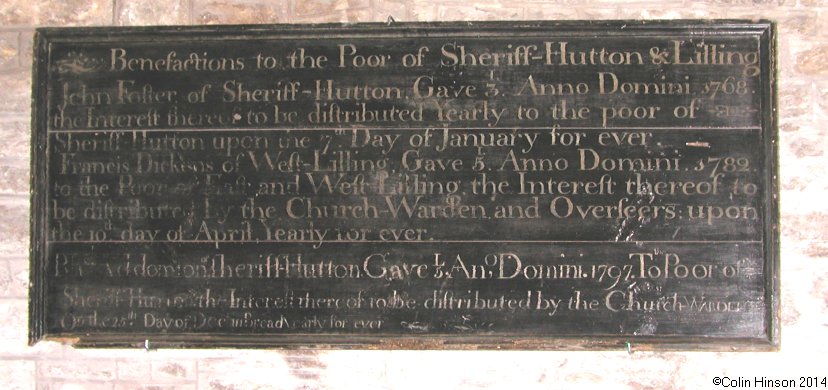 Benefactions to the Poor of Sheriff-Hutton & Lilling
John Foster of Sheriff-Hutton, Gave Anno Domini 1768.
the Interest thereof to be distributed Yearly to the poor of
Sheriff-Hutton upon the 7th Day of January for ever
Francis Dickins of West-Lilling, Gave Anno Domini, 1789.
to the Poor of East and West-Lilling, the Interest thereof to
be distributed by the Church-Warden, and Overseers, upon
the 10th day of April, Yearly for ever.
Sheriff-Hutton Gave Ano. Domini. 1797. To Poor of
Sheriff Hutton the Interest thereof to be distributed by the Church-Warden
On the 25th Day of Dec in Bread yearly for ever
©Colin Hinson 2014